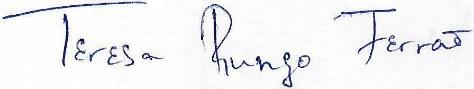 Teresa Rungo Ferrão